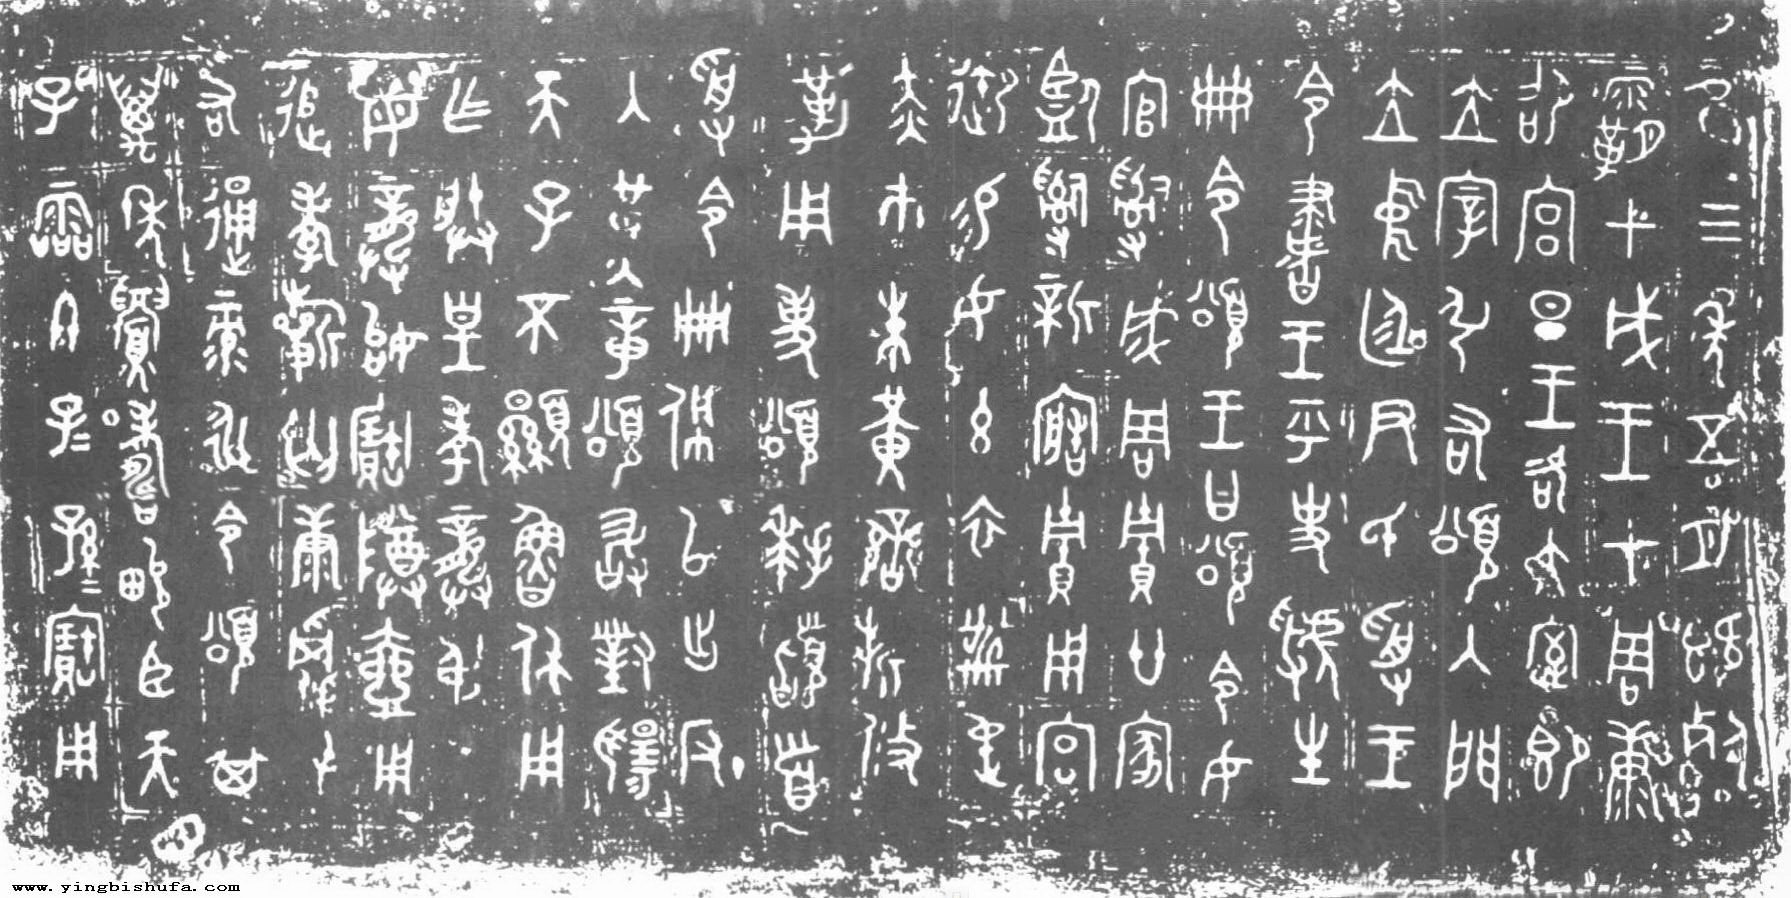 隹三年五月既死
霸甲戌王才周康
卲宮旦王各大室即
立宰弘右頌入門
立中廷尹氏受王
令書王乎史虢生
冊令頌王曰頌令女
官𤔲成周貯廿家
監𤔲新造貯用宮
御易女玄衣黹屯
赤巿朱黃鑾旂攸
勒用事頌拜稽首
受令冊佩以出反
入堇章頌敢對揚
天子不顯魯休用
乍朕皇考龏弔
皇母龏始寶尊壺用
追孝祈匄康𩃬屯
右通彔永令頌其
萬年眉壽畯臣天
子霝冬子=孫=寶用
www.yingbishufa.com